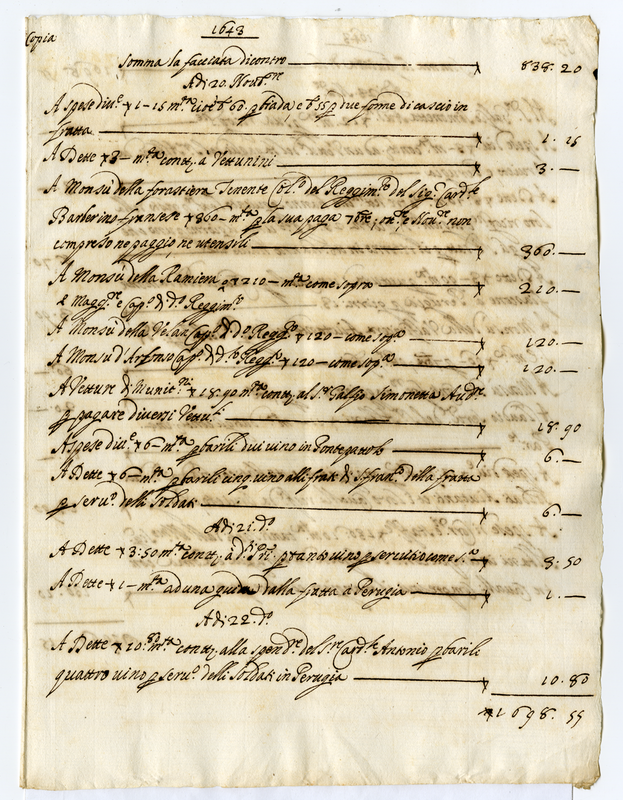 Copia
1643
Somma la facciata dicontro 838. 20
Adi 20. Nou.re
A spese diu.e 1-15 m.ta cioè b. 60. p biada, e b. 55 p due forme di cascio in
fratta 1. 15
A Dette 3- m.ta cont.i à Vetturini 3. —
A Monsù della forastiera Tenente Col.o del Reggim.to del Sig.r Card.le
Barberino fransese 360- m.ta p la sua paga 7bre, ott.re e Nou.re non
compresone paggio, ne utensili 360. —
A Monsù della Ramiera 210- m.ta come sopra 210. —
e Magg.re e Cap.o di d.o Reggim.to
A Monsù della Vilan Cap.o di d.o Regg.to 120- come sop.a 120. —
A Monsù d'Arfonso Cap.o di d.o Regg.to 120- come sop.a 120. —
A Vetture di Munit.ni 18.90 m.ta cont.i al S.r Simonetta Aud.re
p pagare diuersi Vettu.li 18. 90
A spese diu.e 6- m.ta p barili dui uino in Pontepattolo 6. —
A Dette 6- m.ta p barili cinq. uino alli frati di S. fran.co della fratta
p seru.o delli Soldati 6. —
Adi 21. d.o
A Dette 3:50 m.ta cont.i à d.i p tanto uino p seruitio come s.a 3: 50
A Dette 1- m.ta ad una guida dalla fratta a Perugia 1. —
Adi 22. d.o
A Dette 10.80 m.ta cont.i alla spend.re del S.re Card.le Antonio p barili
quattro uino p seru.o delli Soldati in Perugia 10. 80
1698. 55